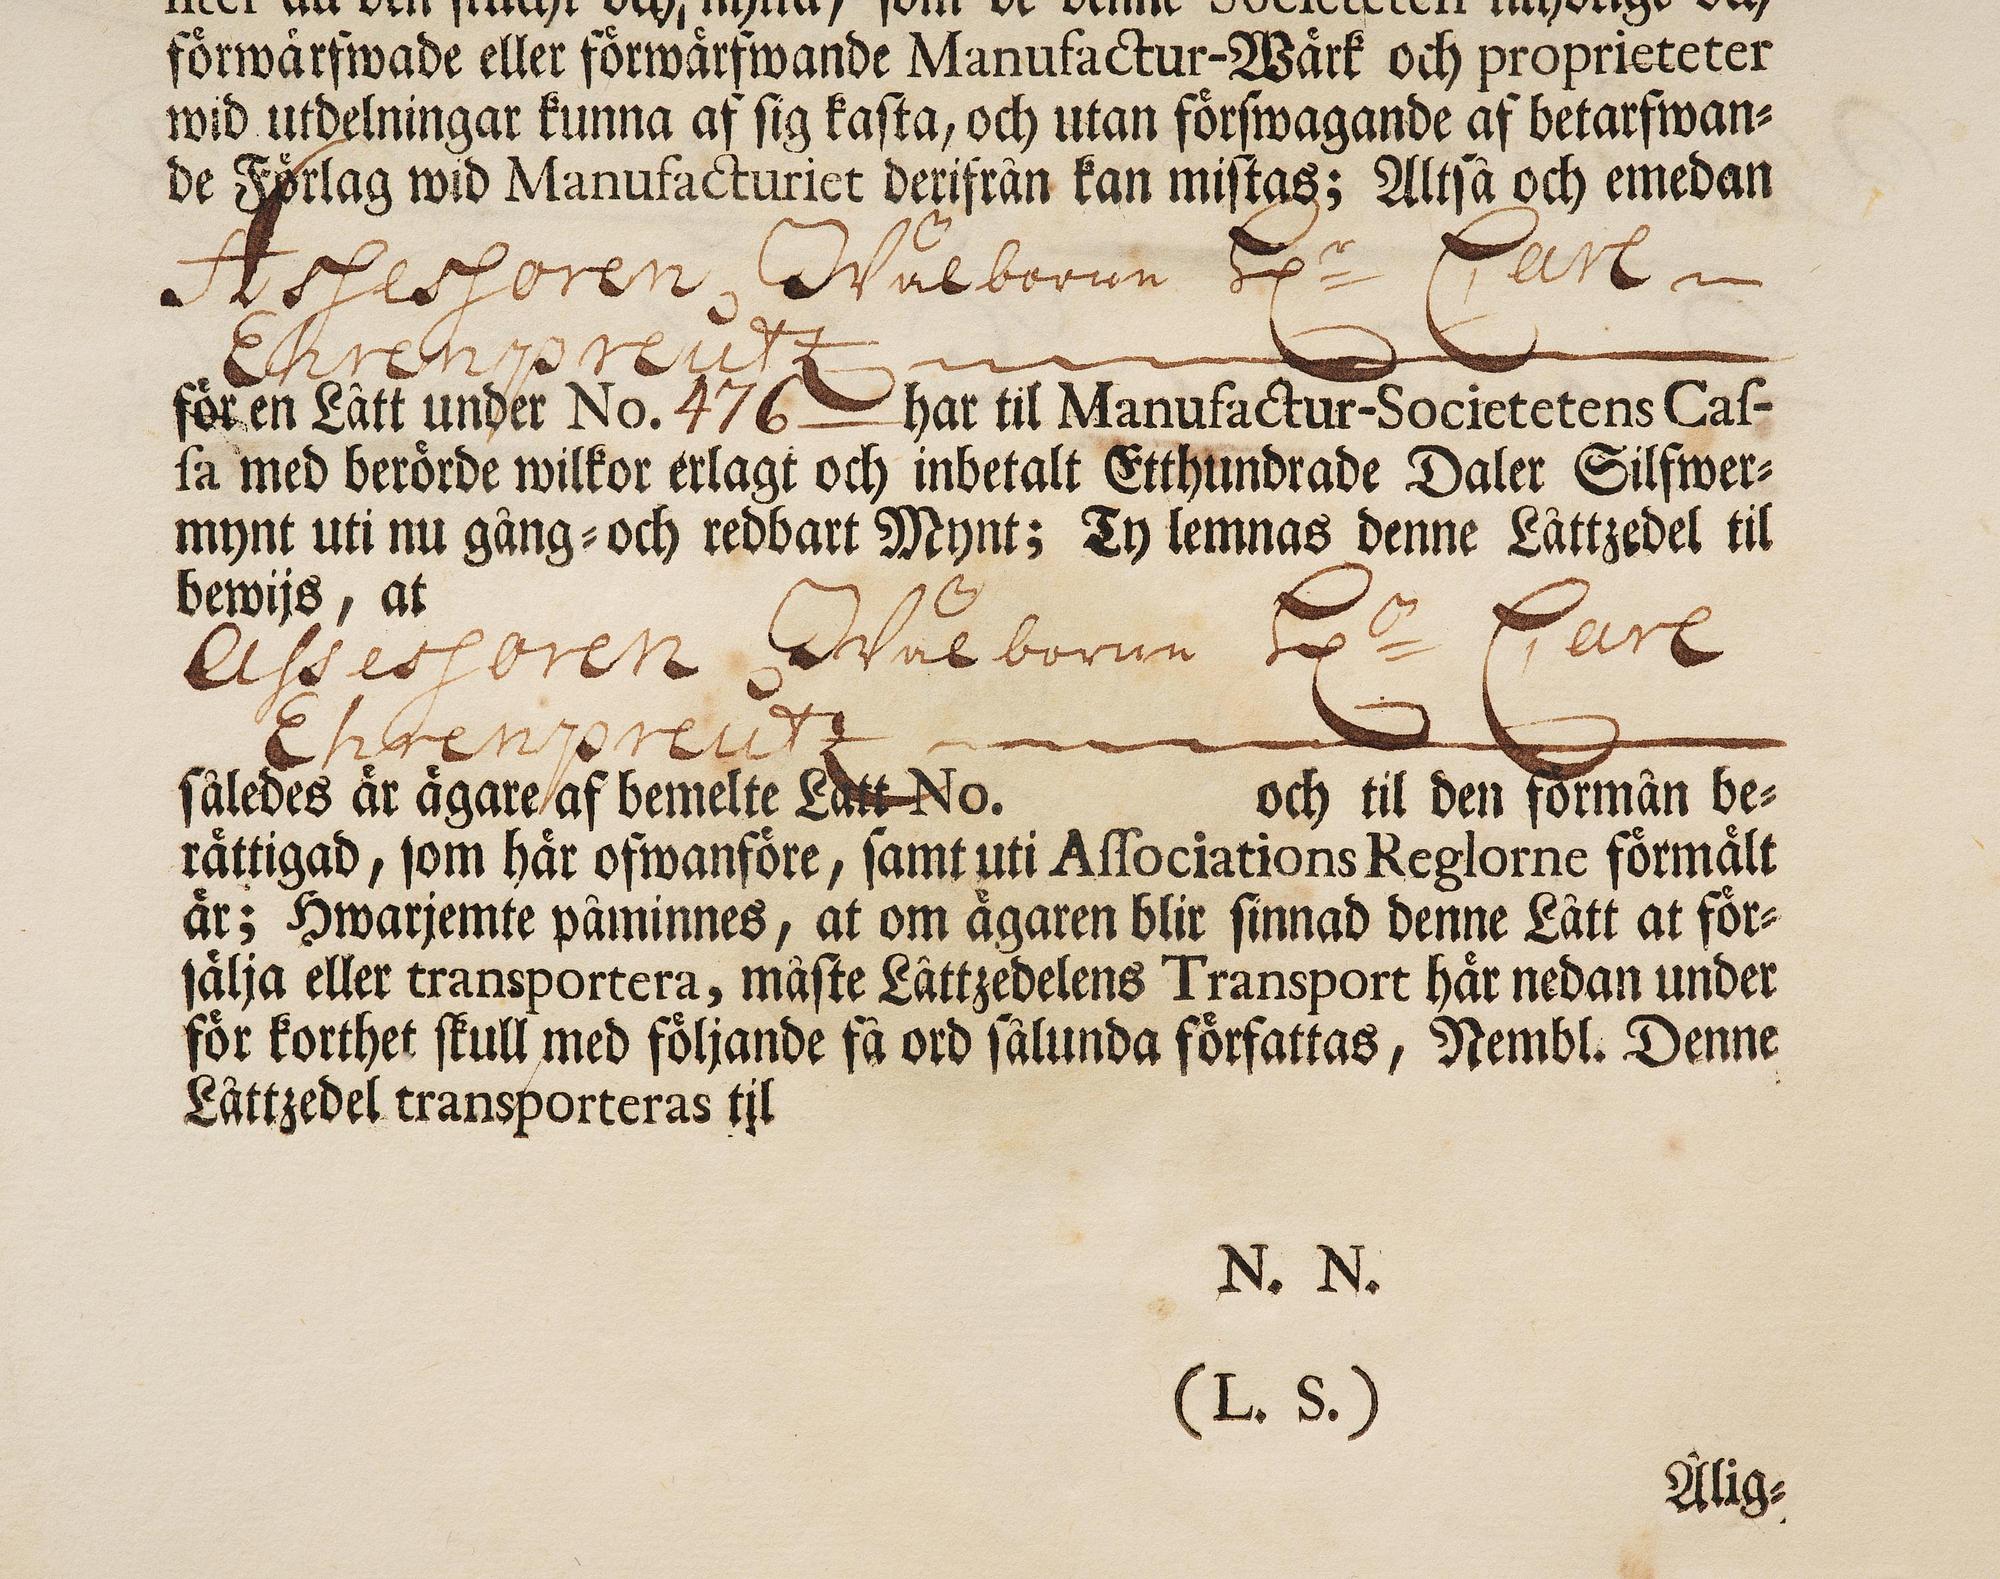 som de denne Societeten tilhörige och
förwärfwade eller förwärfwande Manufactur-Wärk och proprieteter
wid utdelningar kunna af sig kasta, och utan förswagande af betarfwan-
de Förlag wid Manufacturiet derifrån kan mistas; Altså och emedan
Assessoren Wälborne Hr Carl
Ehrenpreutz
för en Lått under No. 476 har til Manufactur-Societetens Cas-
sa med berörde wilkor erlagt och inbetalt Etthundrade Daler Silfwer-
mynt uti nu gång-och redbart Mynt; Ty lemnas denne Låttzedel til
bewijs, at
Assessoren Wälborne Hr Carl
Ehrenpreutz
således är ägare af bemelte Lått No. och til den förmån be-
rättigad, som här ofwanföre, samt uti Associations Reglorne förmält
är; Hwarjemte påminnes, at om ägaren blir sinnad denne Lått at för-
sälja eller transportera, måste Låttzedelens Transport här nedan under
för korthet skull med följande få ord sålunda författas, Nembl. Denne
Låttzedel transporteras til
N. N.
(L. S.)
Ålig-